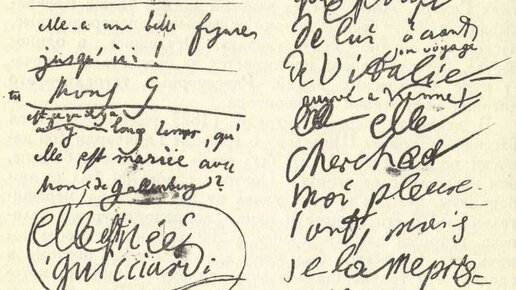 elle a une belle figure
jusqu'ici!
Mons G
long temps, qu'
elle est mariée avec
Mons de Gallenberg?
elle est née
guicciardi
de lui avant
son voyage
de l'Italie
arrivé a Vienne
elle
cherchoit
moi pleur
ant, mais
je la mepris